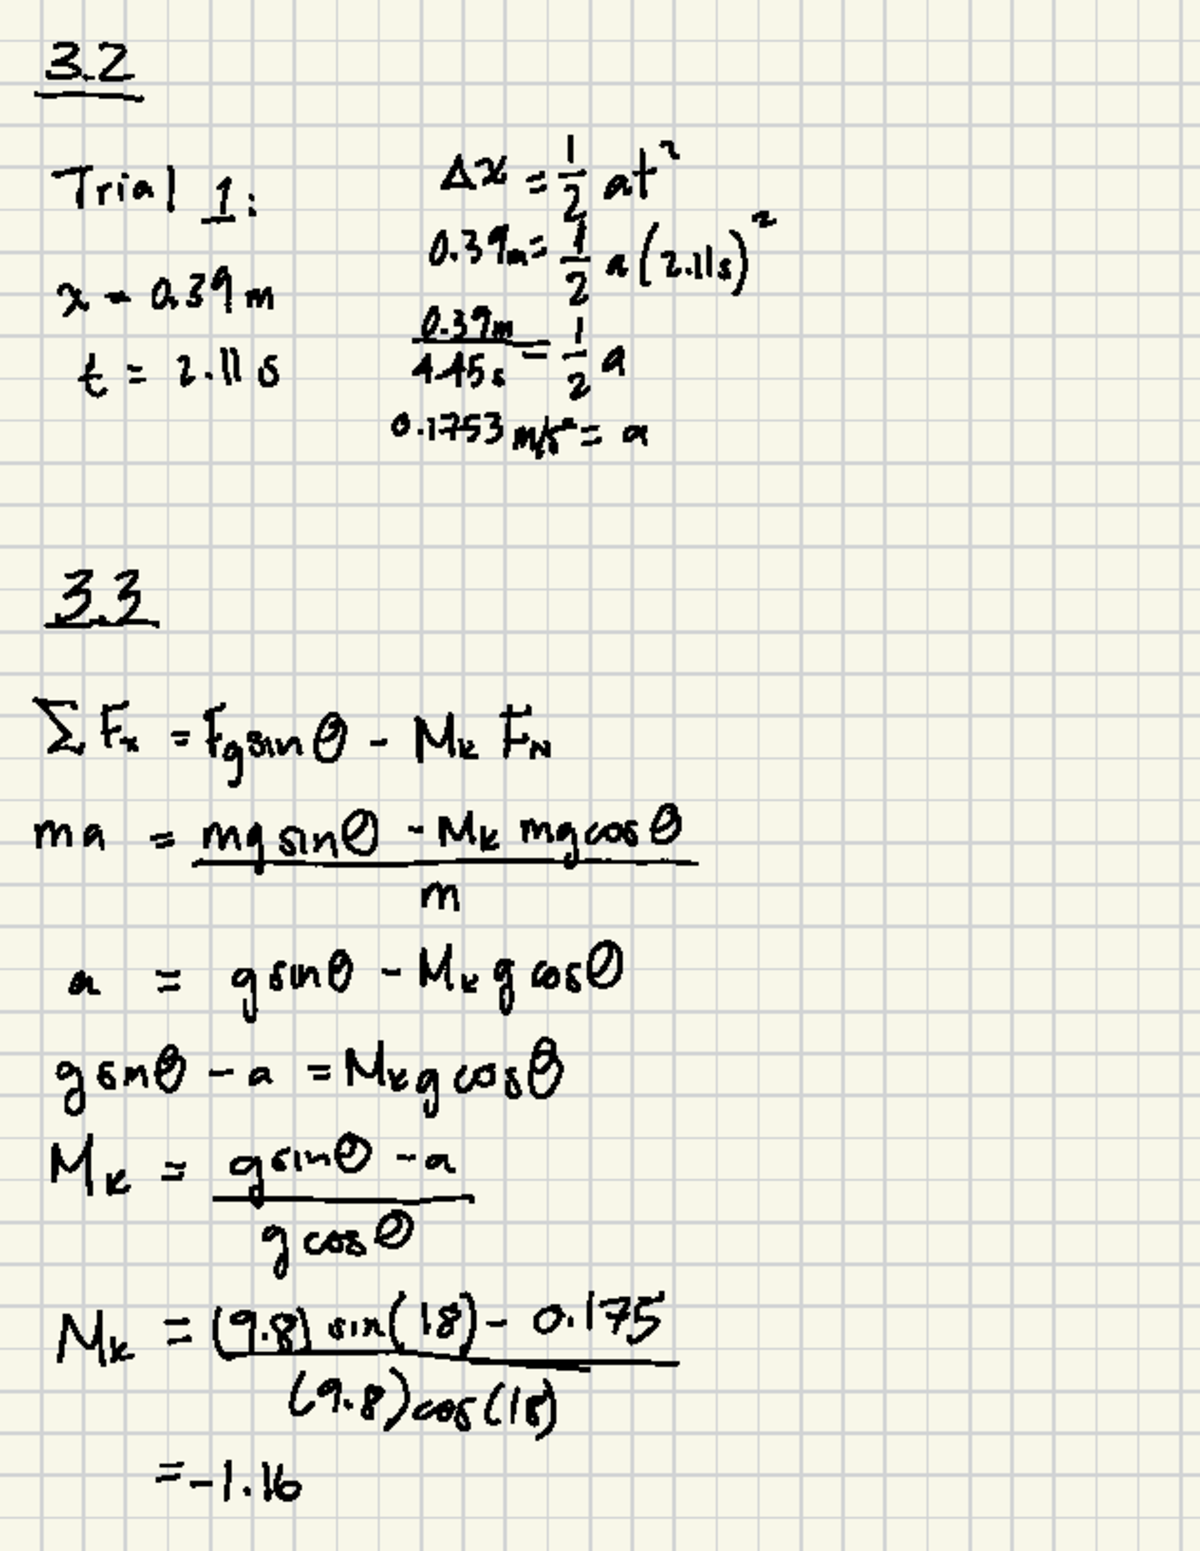 3.2
Trial 1:
x = 0.39 m
t = 2.11 s
Δx = 1/2 at²
0.39m = 1/2 a(2.11s)²
0.39m/4.45s = 1/2 a
0.1753 m/s² = a
3.3
∑ Fx = Fg sinθ - Mk FN
ma = (mg sinθ - Mk mg cosθ)/m
a = g sinθ - Mk g cosθ
g sinθ - a = Mk g cosθ
Mk = (g sinθ - a)/(g cosθ)
Mk = ((9.8) sin(18) - 0.175)/((9.8) cos(18))
= -1.16